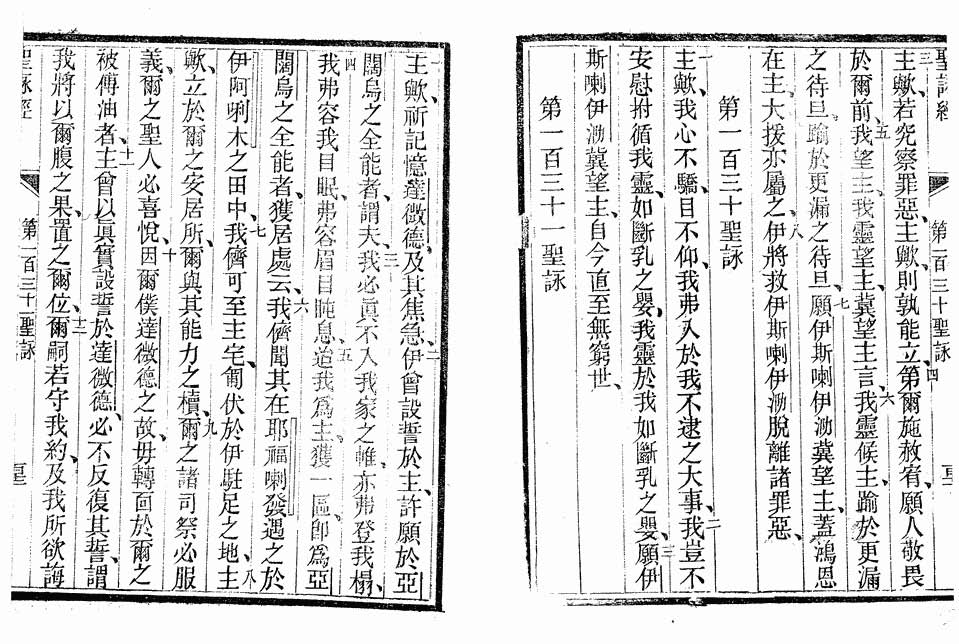 聖詠經
第一百三十聖詠
三主歟、若究察罪惡、主歟、則孰能立、第爾施赦宥、願人敬畏四
於爾前、五我望主、我靈望主、冀望主言、六我靈候主、踰於更漏
之待旦、踰於更漏之待旦、七願伊斯喇伊泐冀望主、蓋鴻恩
在主、大撥亦屬之、八伊將救伊斯喇伊泐脫離諸罪惡、
第一百三十聖詠
一主歟、我心不驕、目不仰、我弗入於我不逮之大事、二我豈不
安慰拊循我靈、如斷乳之嬰、我靈於我、如斷乳之嬰、三願伊
斯喇伊泐冀望主、自今直至無窮世、
第一百三十一聖詠
一主歟、祈記憶達微德、及其焦急、二伊曾設誓於主、許願於亞
闊烏之全能者、謂夫、三我必眞不入我家之帷、亦弗登我榻、
四我弗容我目眠、弗容眉目盹息、五迨我爲主、獲一區、卽爲亞
闊烏之全能者、獲居處云、六我儕聞其在耶福喇發、遇之於
伊阿唎木之田中、七我儕可至主宅、匍伏於伊駐足之地、八主
歟、立於爾之安居所、爾與其能力之櫝、九爾之諸司祭必服
義、爾之聖人必喜悅、十因爾僕達微德之故、毋轉面於爾之
被傅油者、十一主曾以眞實設誓於達微德、必不反復其誓、謂
我將以爾腹之果、置之爾位、十二爾嗣若守我約、及我所欲誨
聖詠經
第一百三十一聖詠